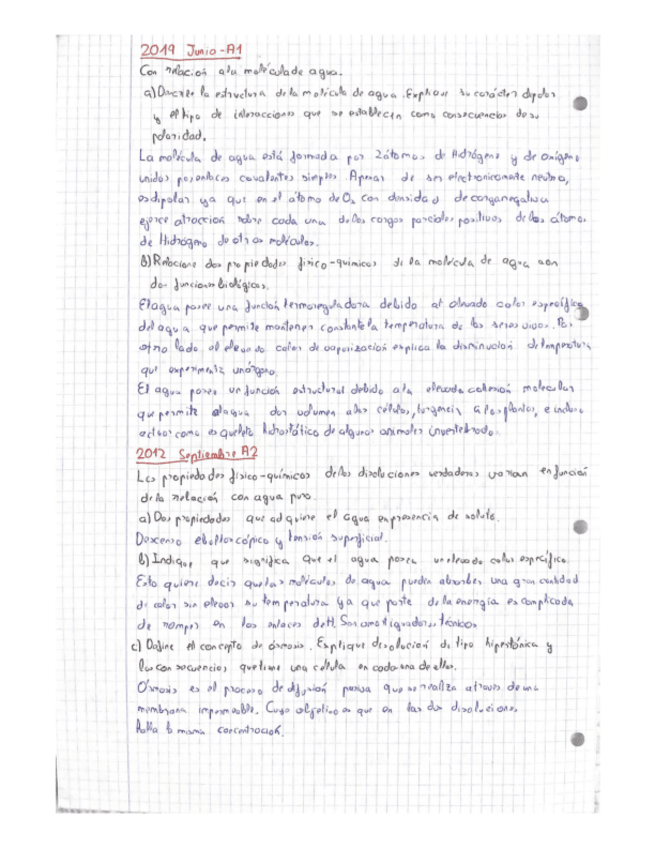 2019 Junio-A1
Con relación a la molécula de agua.
a) Describe la estructura de la molécula de agua. Explique su carácter dipolar
y el tipo de interacciones que se establecen como consecuencia de su
polaridad.
La molécula de agua está formada por 2 átomos de Hidrógeno y de oxígeno
unidos por enlaces covalentes simples. Apenar de ser electronicamente neutra,
es dipolar ya que en el átomo de O₂ con densidad de carga negativa
ejerce atracción sobre cada una de los cargas parciales positivas de los átomos
de Hidrógeno de otras moléculas.
b) Relacione dos propiedades físico-químicas de la molécula de agua con
dos funciones biológicas.
El agua posee una función termoreguladora debido al elevado calor específico
del agua que permite mantener constante la temperatura de los seres vivos. Por
otro lado el elevado calor de vaporización explica la disminución de temperatura
que experimenta un órgano.
El agua posee un función estructural debido a la elevada cohesión molecular
que permite al agua dar volumen a las células, turgencia a las plantas, e incluso
actuar como esqueleto hidrostático de algunos animales invertebrados.
2012 Septiembre A2
Las propiedades físico-químicas de las disoluciones verdaderas varían en función
de la relación con agua pura.
a) Dos propiedades que adquiere el agua en presencia de soluto.
Descenso ebulloscópico y tensión superficial.
b) Indique que significa que el agua posea un elevado calor específico.
Esto quiere decir que las moléculas de agua pueden absorber una gran cantidad
de calor sin elevar su temperatura ya que parte de la energía es
de romper en los enlaces de H. Son amortiguadores térmicos.
c) Define el concepto de ósmosis. Explique disolución de tipo hipertónica y
las consecuencias que tiene una célula en cada una de ellas.
Ósmosis es el proceso de difusión pasiva que se realiza a través de una
membrana impermeable. Cuyo objetivo es que en las dos disoluciones
halla la misma concentración.